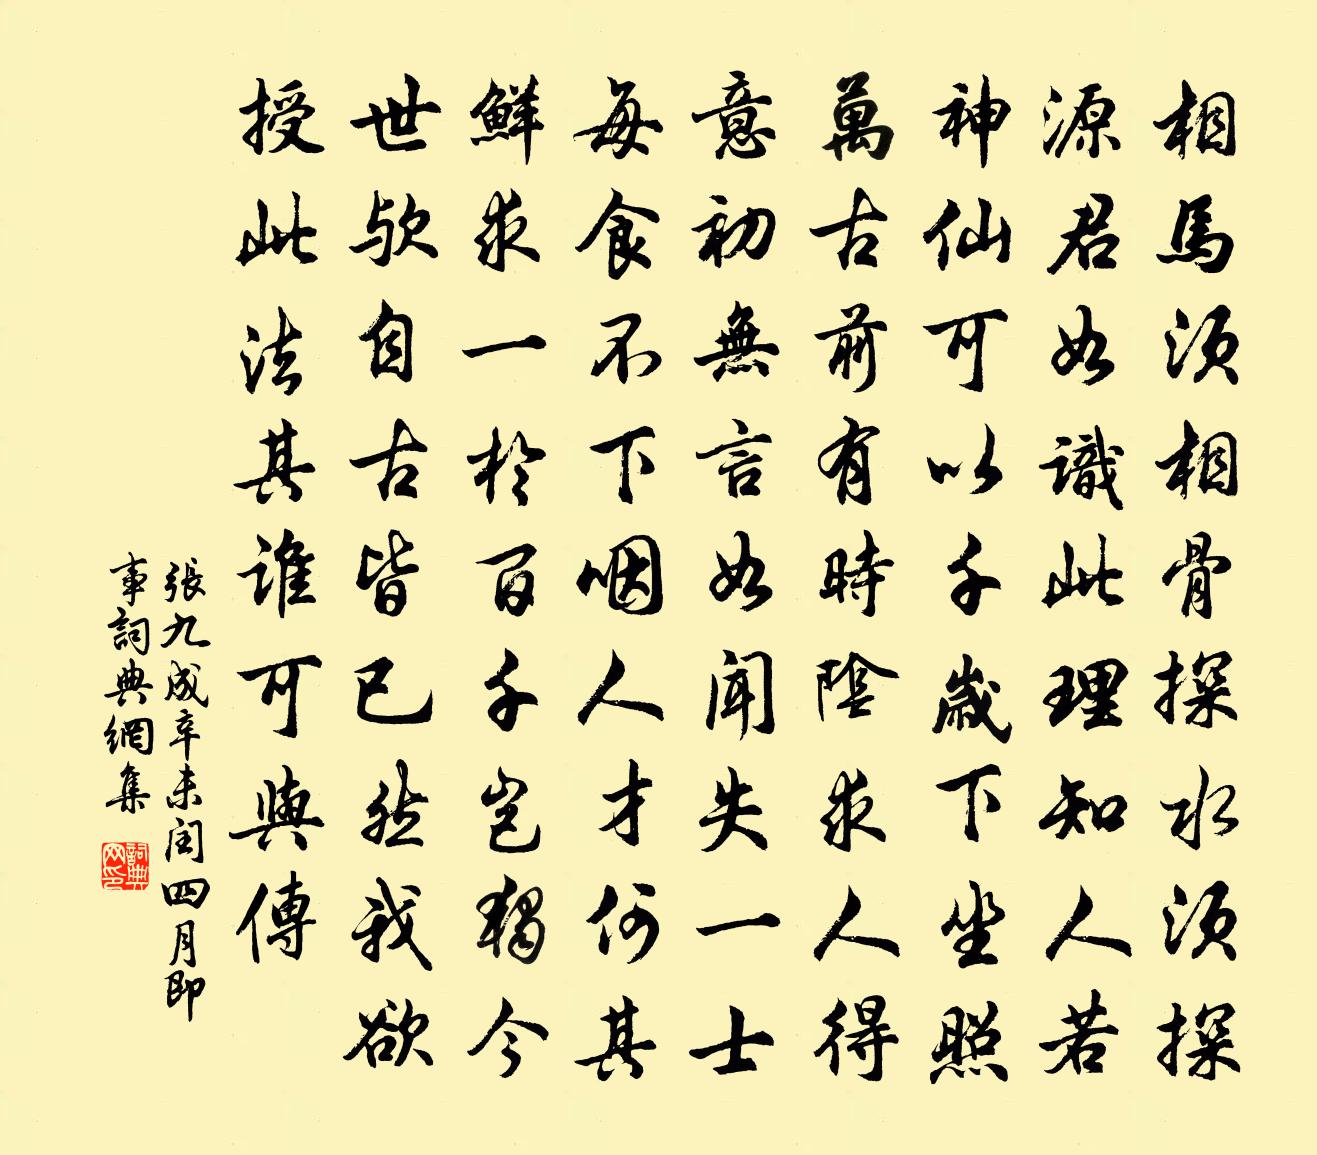 相馬須相骨探水須探
源君如識此理知人若
神仙可以千歲下坐照
萬古前有時陰求人得
意初無言如聞失一士
每食不下咽人才何其
鮮求一於百千豈獨今
世歟自古皆已然我欲
授此法其誰可與傳
張九成辛未閏四月即
事詞典網集
詞典
网印